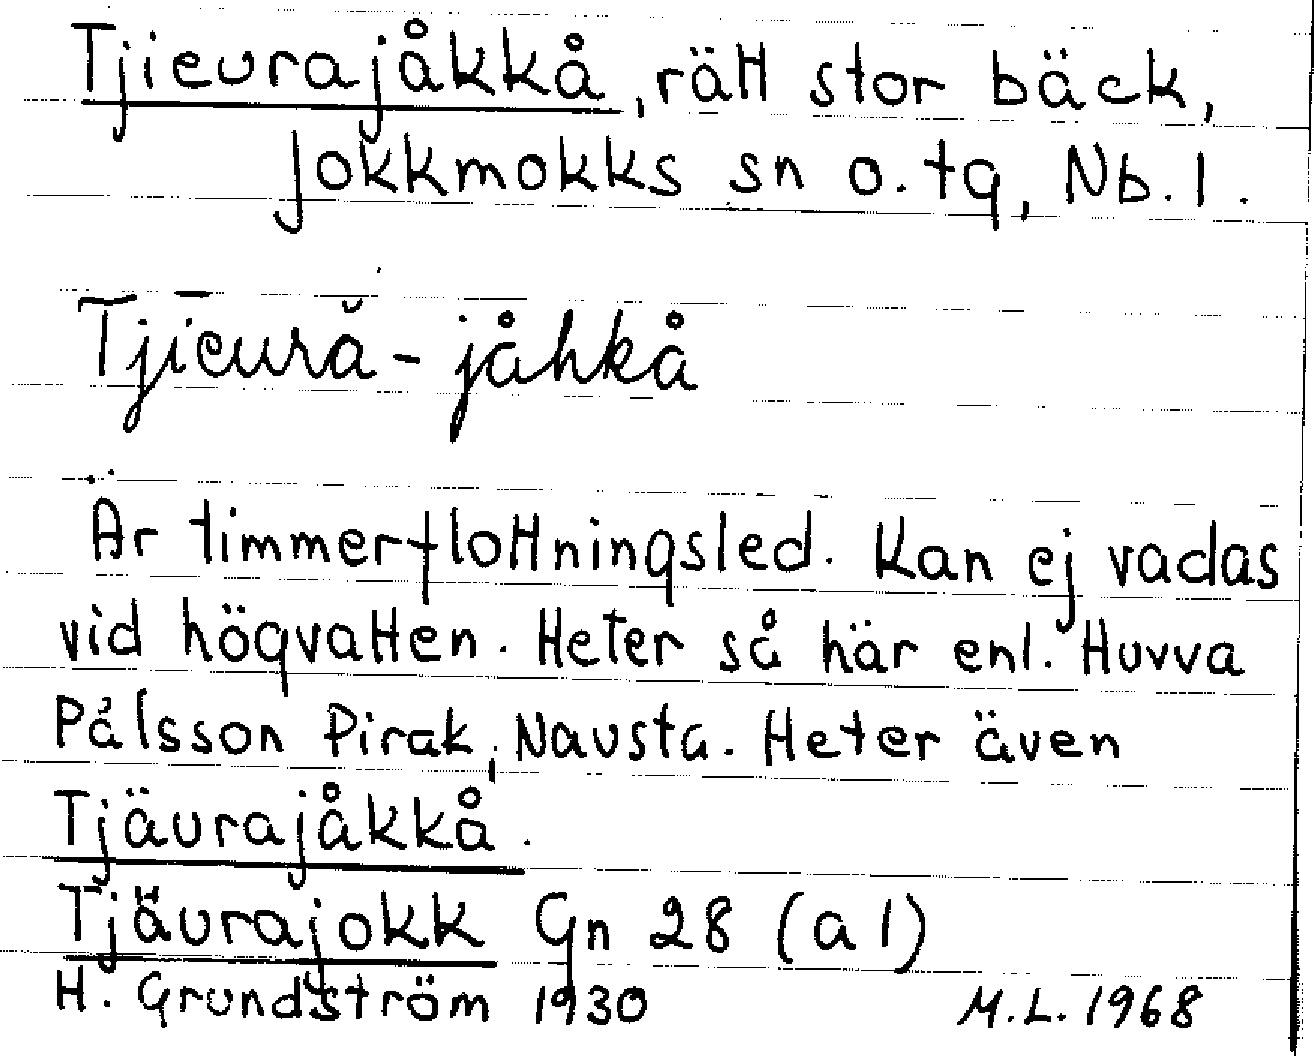 Tjieurajåkkå, rätt stor bäck,
Jokkmokks sn o. tg, Nb. l.
Tjīēură - jåhkå
Är timmerflottningsled. Kan ej vadas
vid högvatten. Heter så här enl. Huvva
Pålsson Pirak, Nausta. Heter även
Tjäurajåkkå.
Tjäurajokk Gn 28 (a 1)
H. Grundström 1930 M.L. 1968